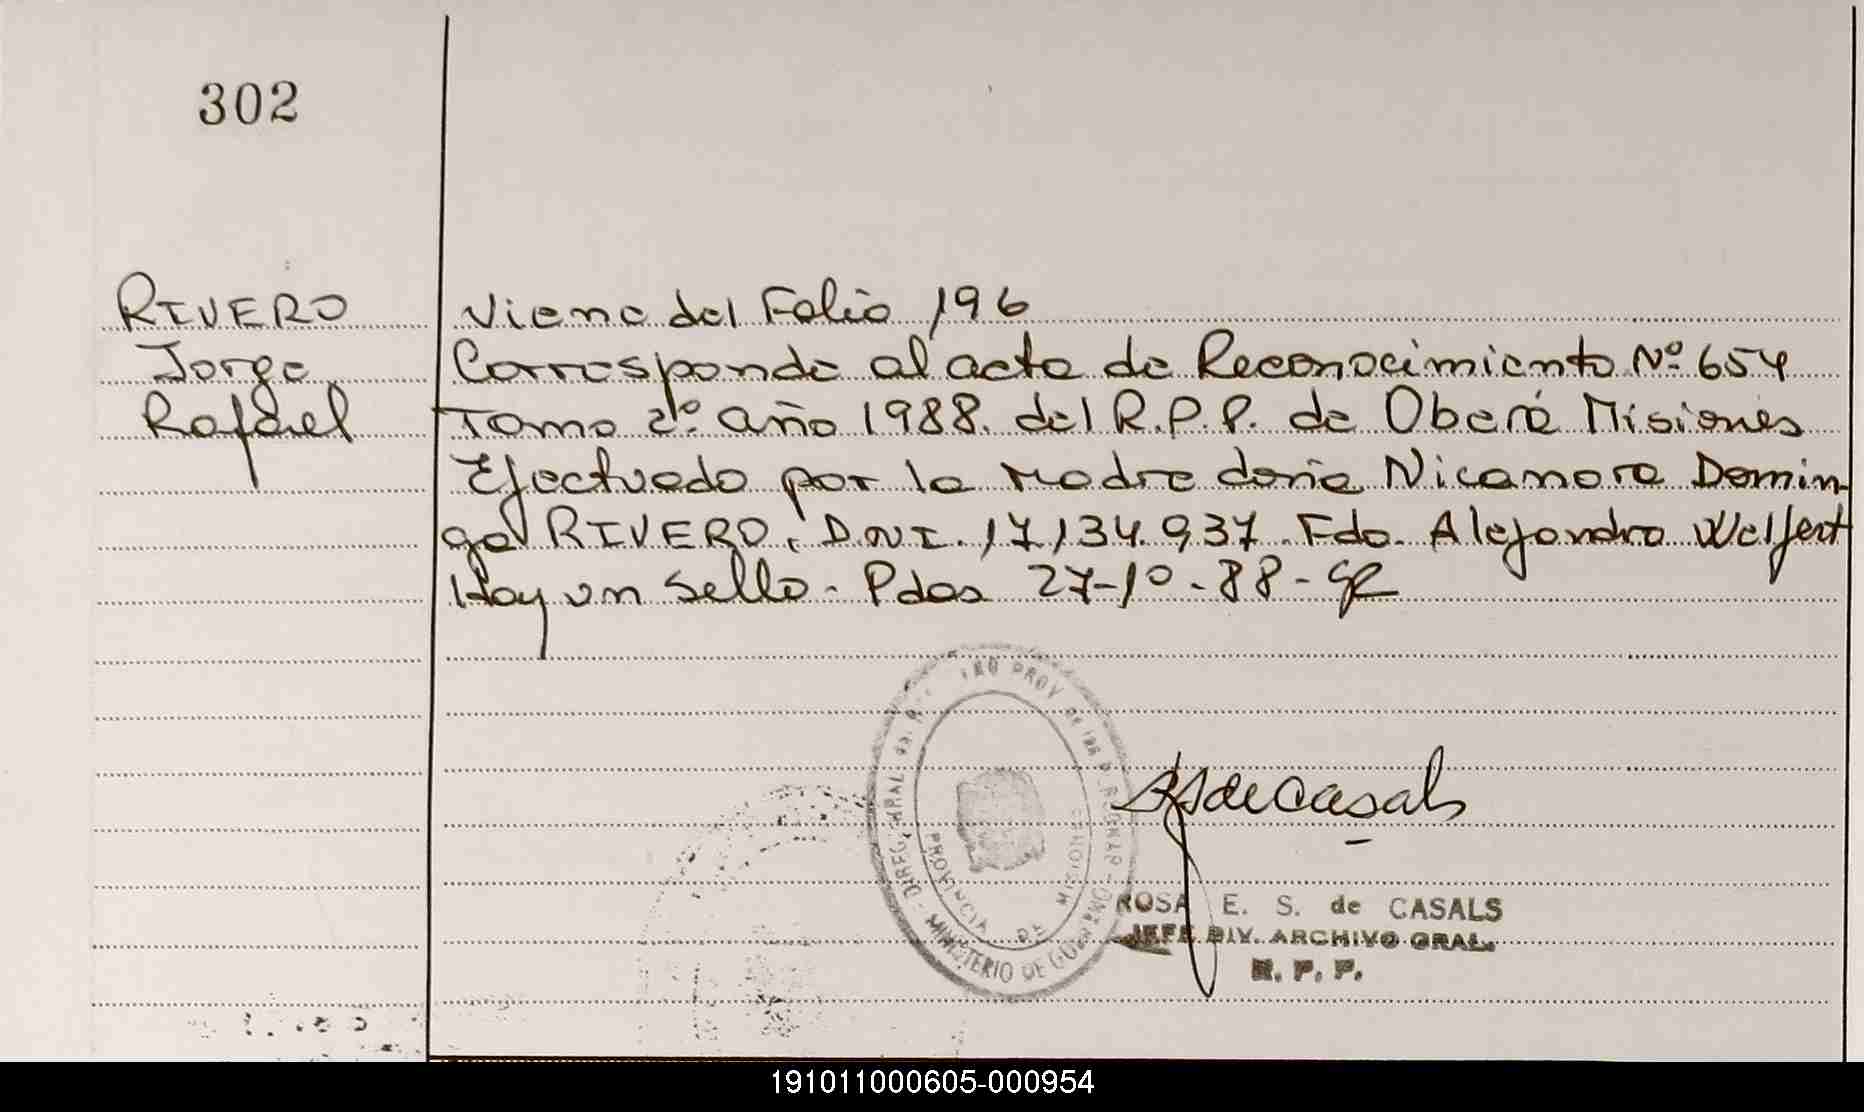 302
RIVERO
Jorge
Rafael
Viene del Folio 196
Corresponde al acta de Reconocimiento Nº 654
Tomo 2º año 1988. del R.P.P. de Oberá Misiones
Efectuado por la Madre doña Nicanora Domin-
ga RIVERO, D.N.I. 17.134.937. Fdo. Alejandro Welfert
Hay un Sello. Pdas 27-10-88-
DIREC. GRAL de PROV de las PERSONAS - MINISTERIO DE GOBIERNO
PROVINCIA DE MISIONES
RSdeCasals
ROSA E. S. de CASALS
JEFE DIV. ARCHIVO GRAL.
R. P. P.
191011000605-000954